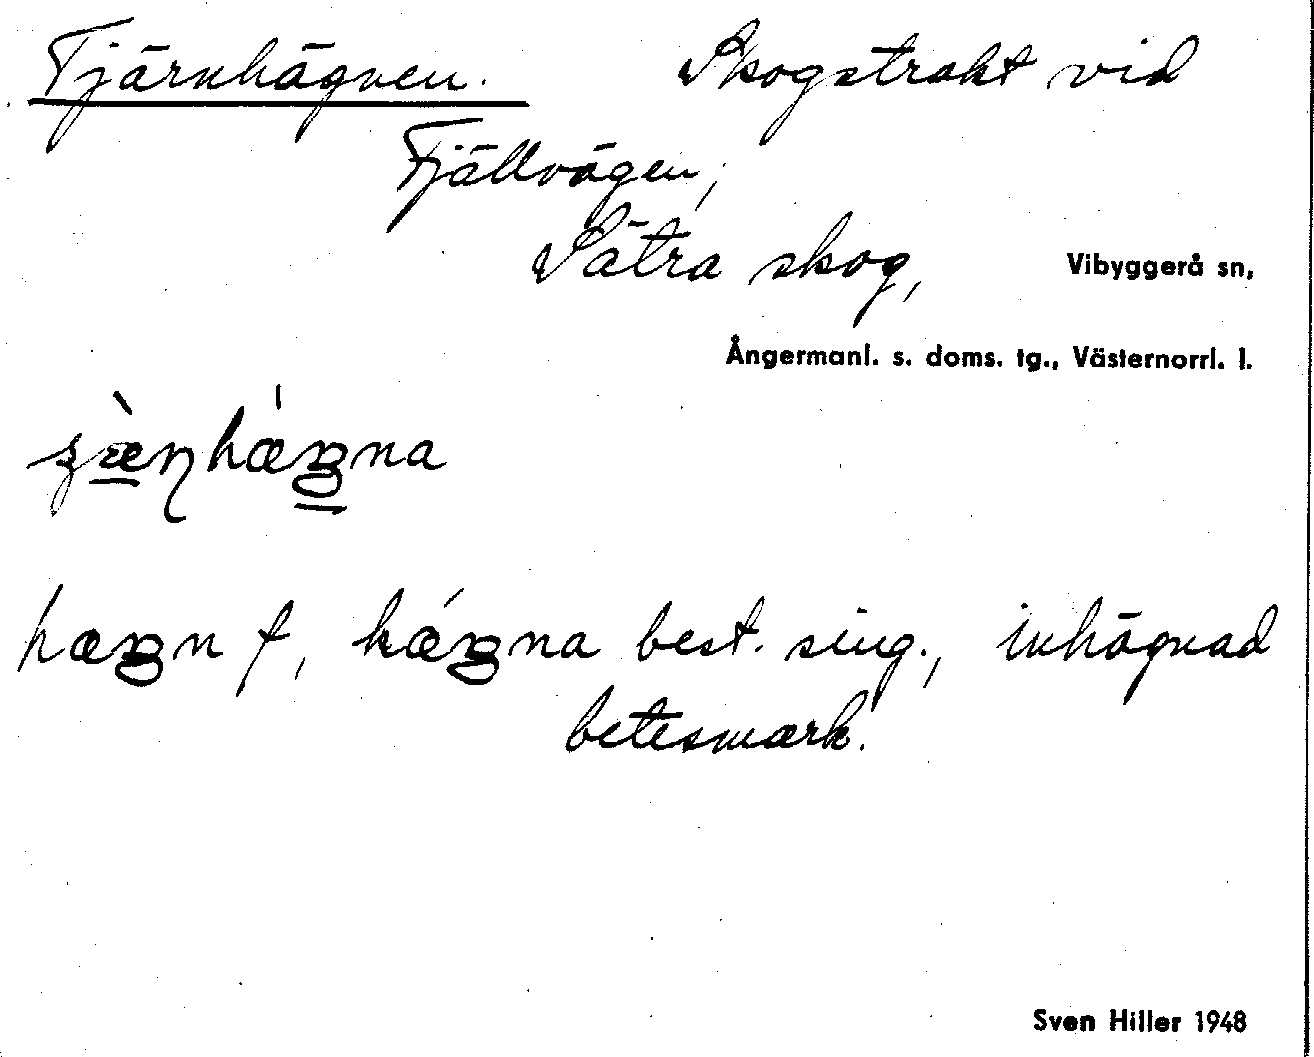 Tjärnhägnen. Skogstrakt vid
Fjällvägen,
Sätra skog, Vibyggerå sn,
Ångermanl. s. doms. tg., Västernorrl. l.
best. sing., inhägnad
betesmark.
Sven Hiller 1948